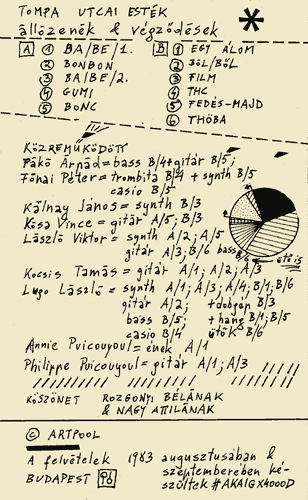 TOMPA UTCAI ESTÉK
állózenék & végződések *
A 1 BA/BE/1. B 1 EGY ÁLOM
2 BONBON 2 BÓL/BŐL
3 BA/BE/2. 3 FILM
4 GUMI 4 THC
5 BONC 5 FEDÉS-MAJD
6 THÓBA
KÖZREMŰKÖDÖTT
Pákó Árpád = bass B/4+gitár B/5;
Fónai Péter = trombita B/4 + synth B/5
casio B/5
Kálnay János = synth B/3
Kósa Vince = gitár A/5; B/3
László Viktor = synth A/2; A/5
gitár A/3; B/6 bass B/6
ütő is
Kocsis Tamás = gitár A/1; A/2; A/3
Lugo László = synth A/1; A/3; A/4; B/1; B/6
gitár A/2; +dobgép B/3
bass B/5; +hang B/1; B/5
casio B/4 ütők B/6
Annie Puicouyoul = ének A/1
Philippe Puicouyoul = gitár A/1; A/3
KÖSZÖNET ROZGONYI BÉLÁNAK
& NAGY ATTILÁNAK
© ARTPOOL
A felvételek 1983 augusztusában &
szeptemberében ké-
BUDAPEST 96 szültek #AKAIGX4000D